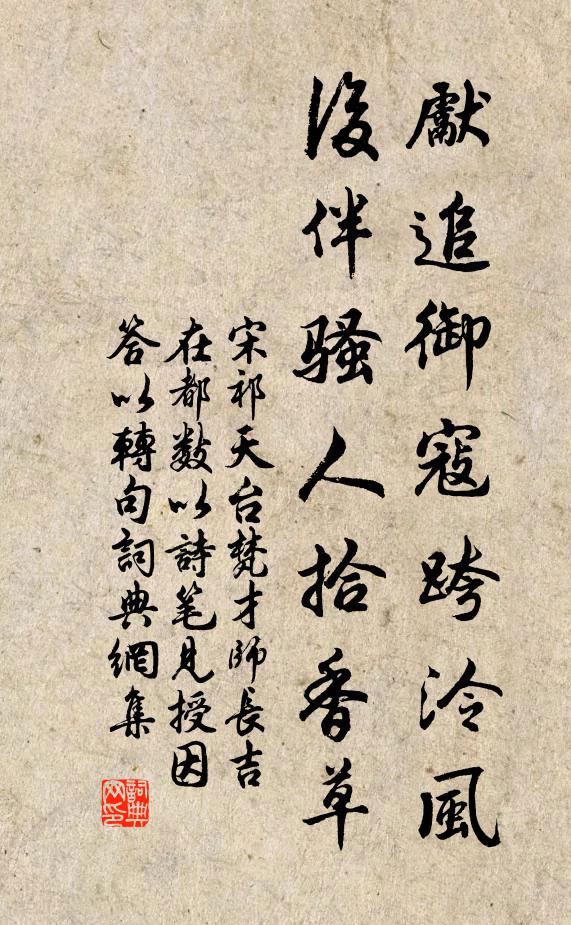 獻追御寇跨泠風
後伴騷人拾香草
宋祁天台梵才師長吉
在都數以詩笔見授因
答以轉句詞典網集
詞典網印